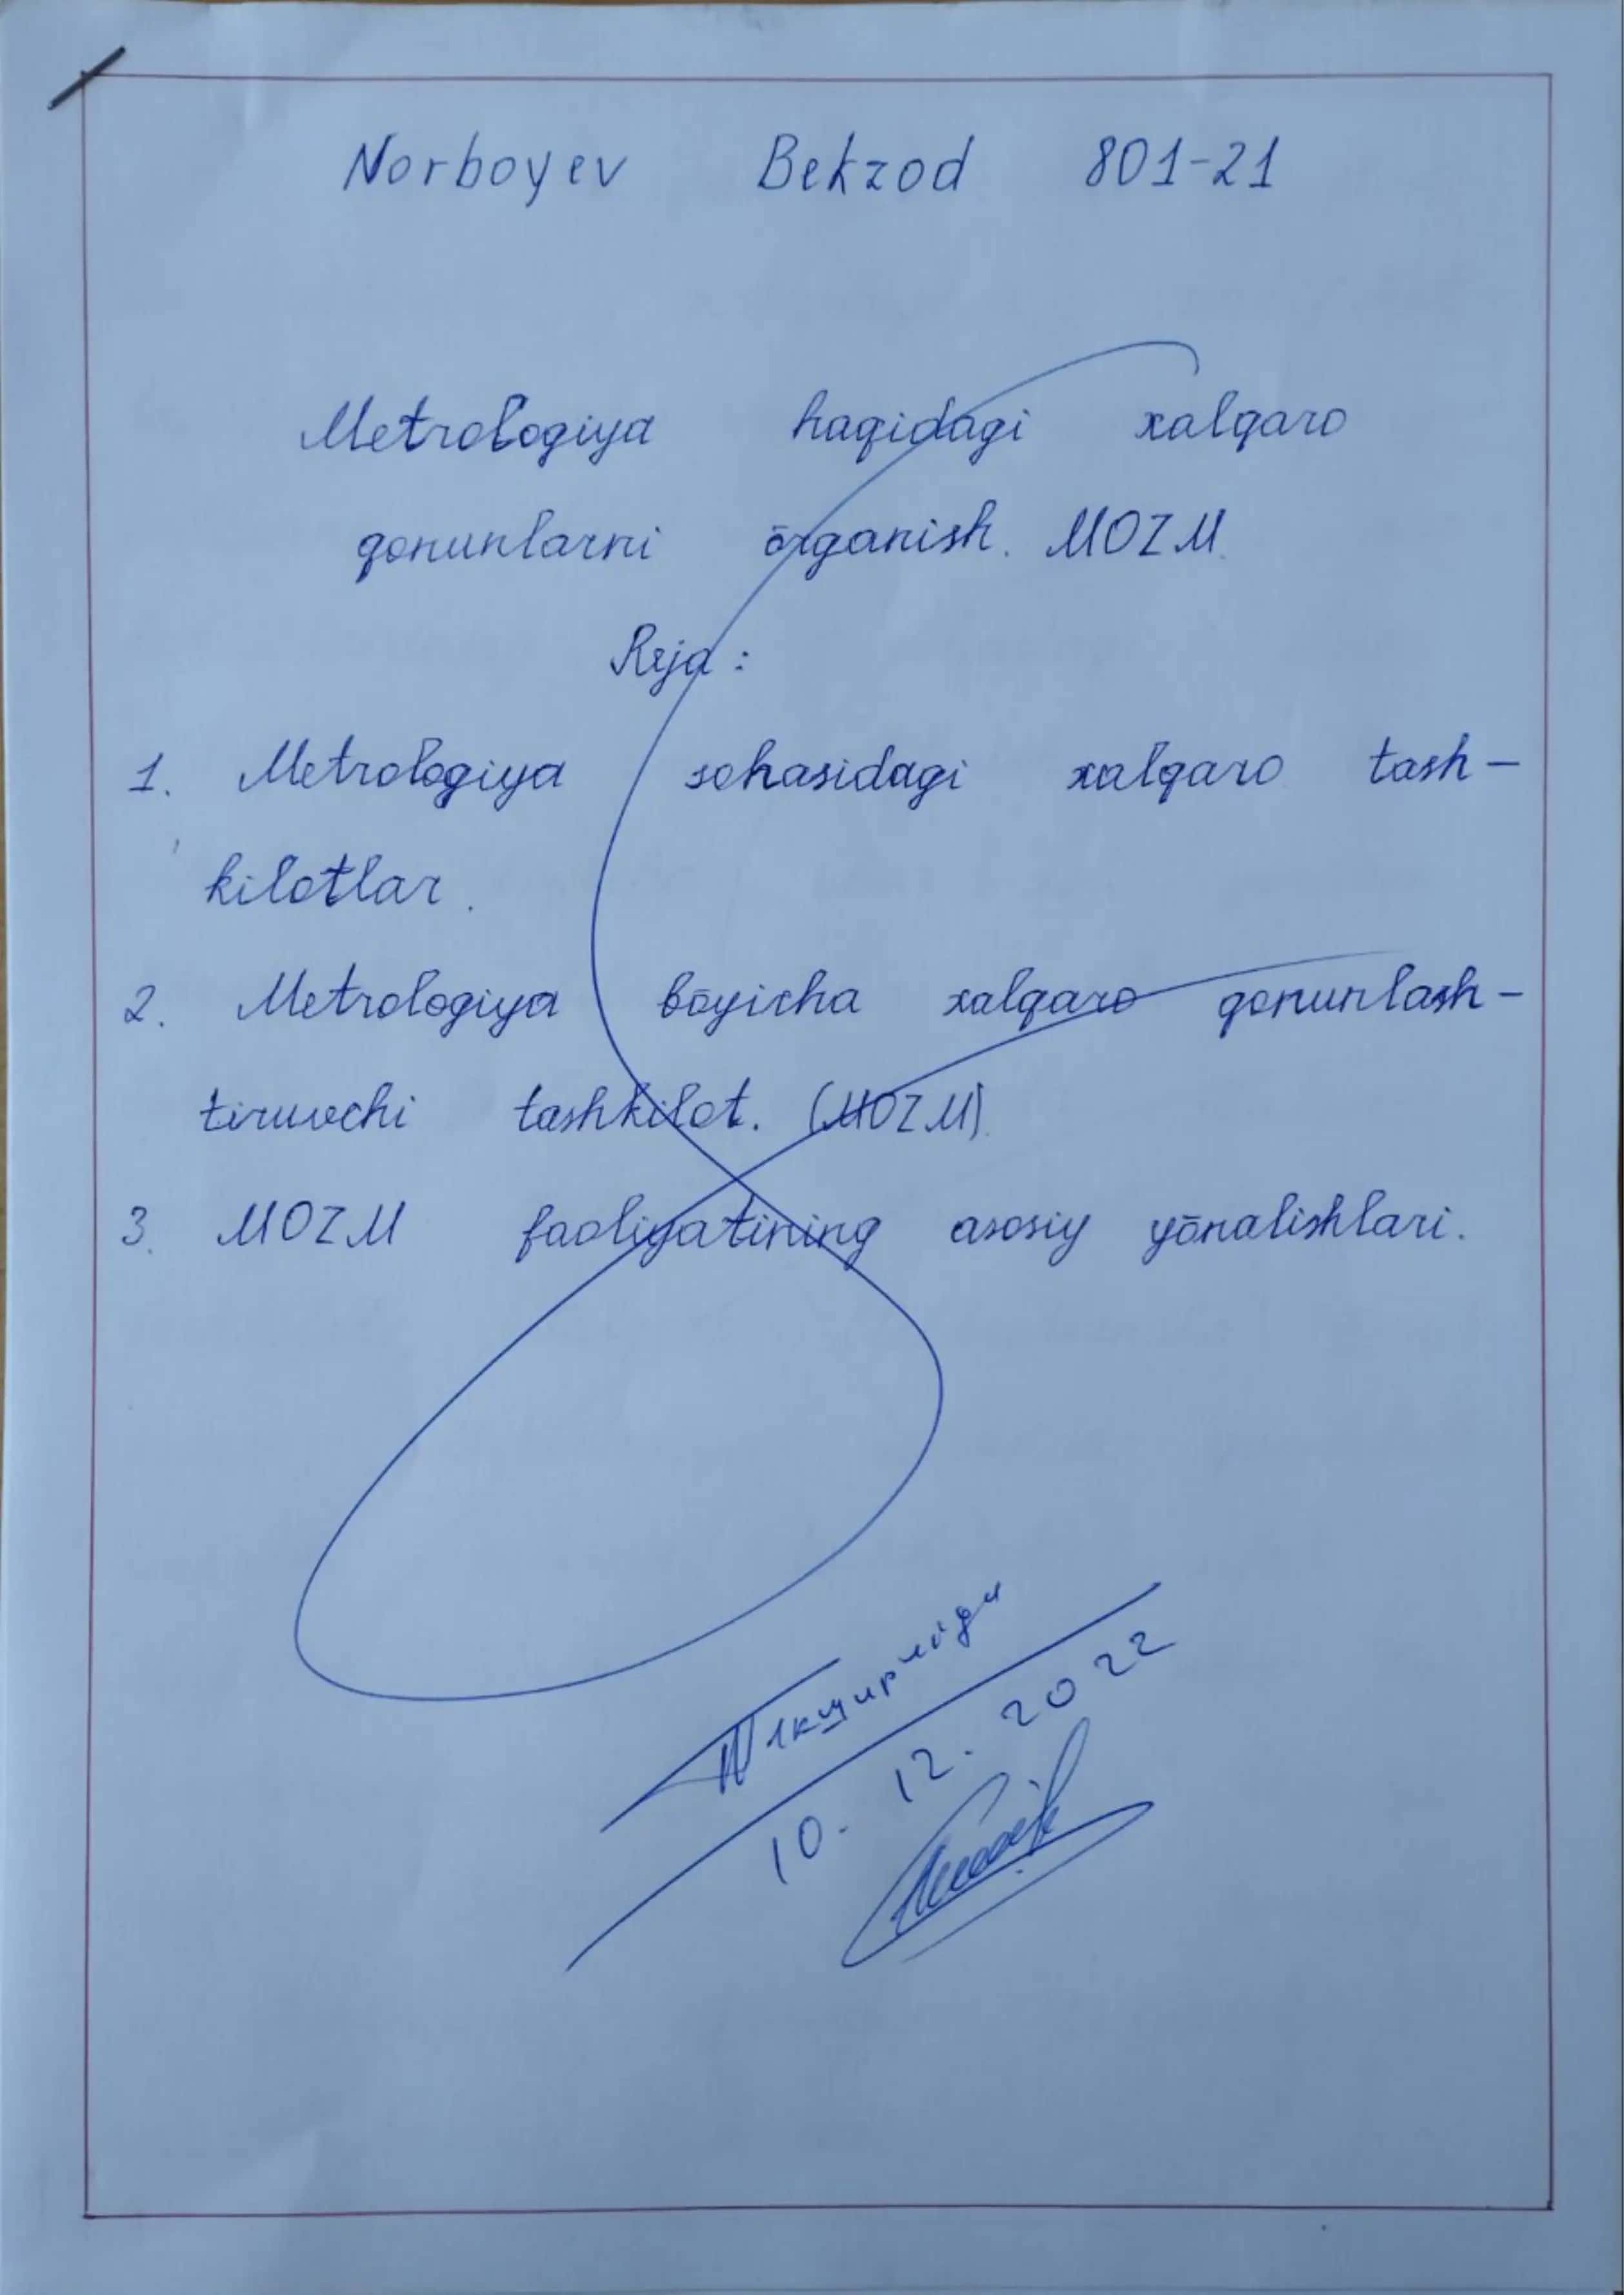 Norboyev Bekzod 801-21
Metrologiya haqidagi xalqaro
qonunlarni ōrganish. MOZM.
Reja:
1. Metrologiya sohasidagi xalqaro tash-
kilotlar.
2. Metrologiya bōyicha xalqaro qonunlash-
tiruvchi tashkilot. (MOZM).
3. MOZM faoliyatining asosiy yōnalishlari.
10. 12. 2022